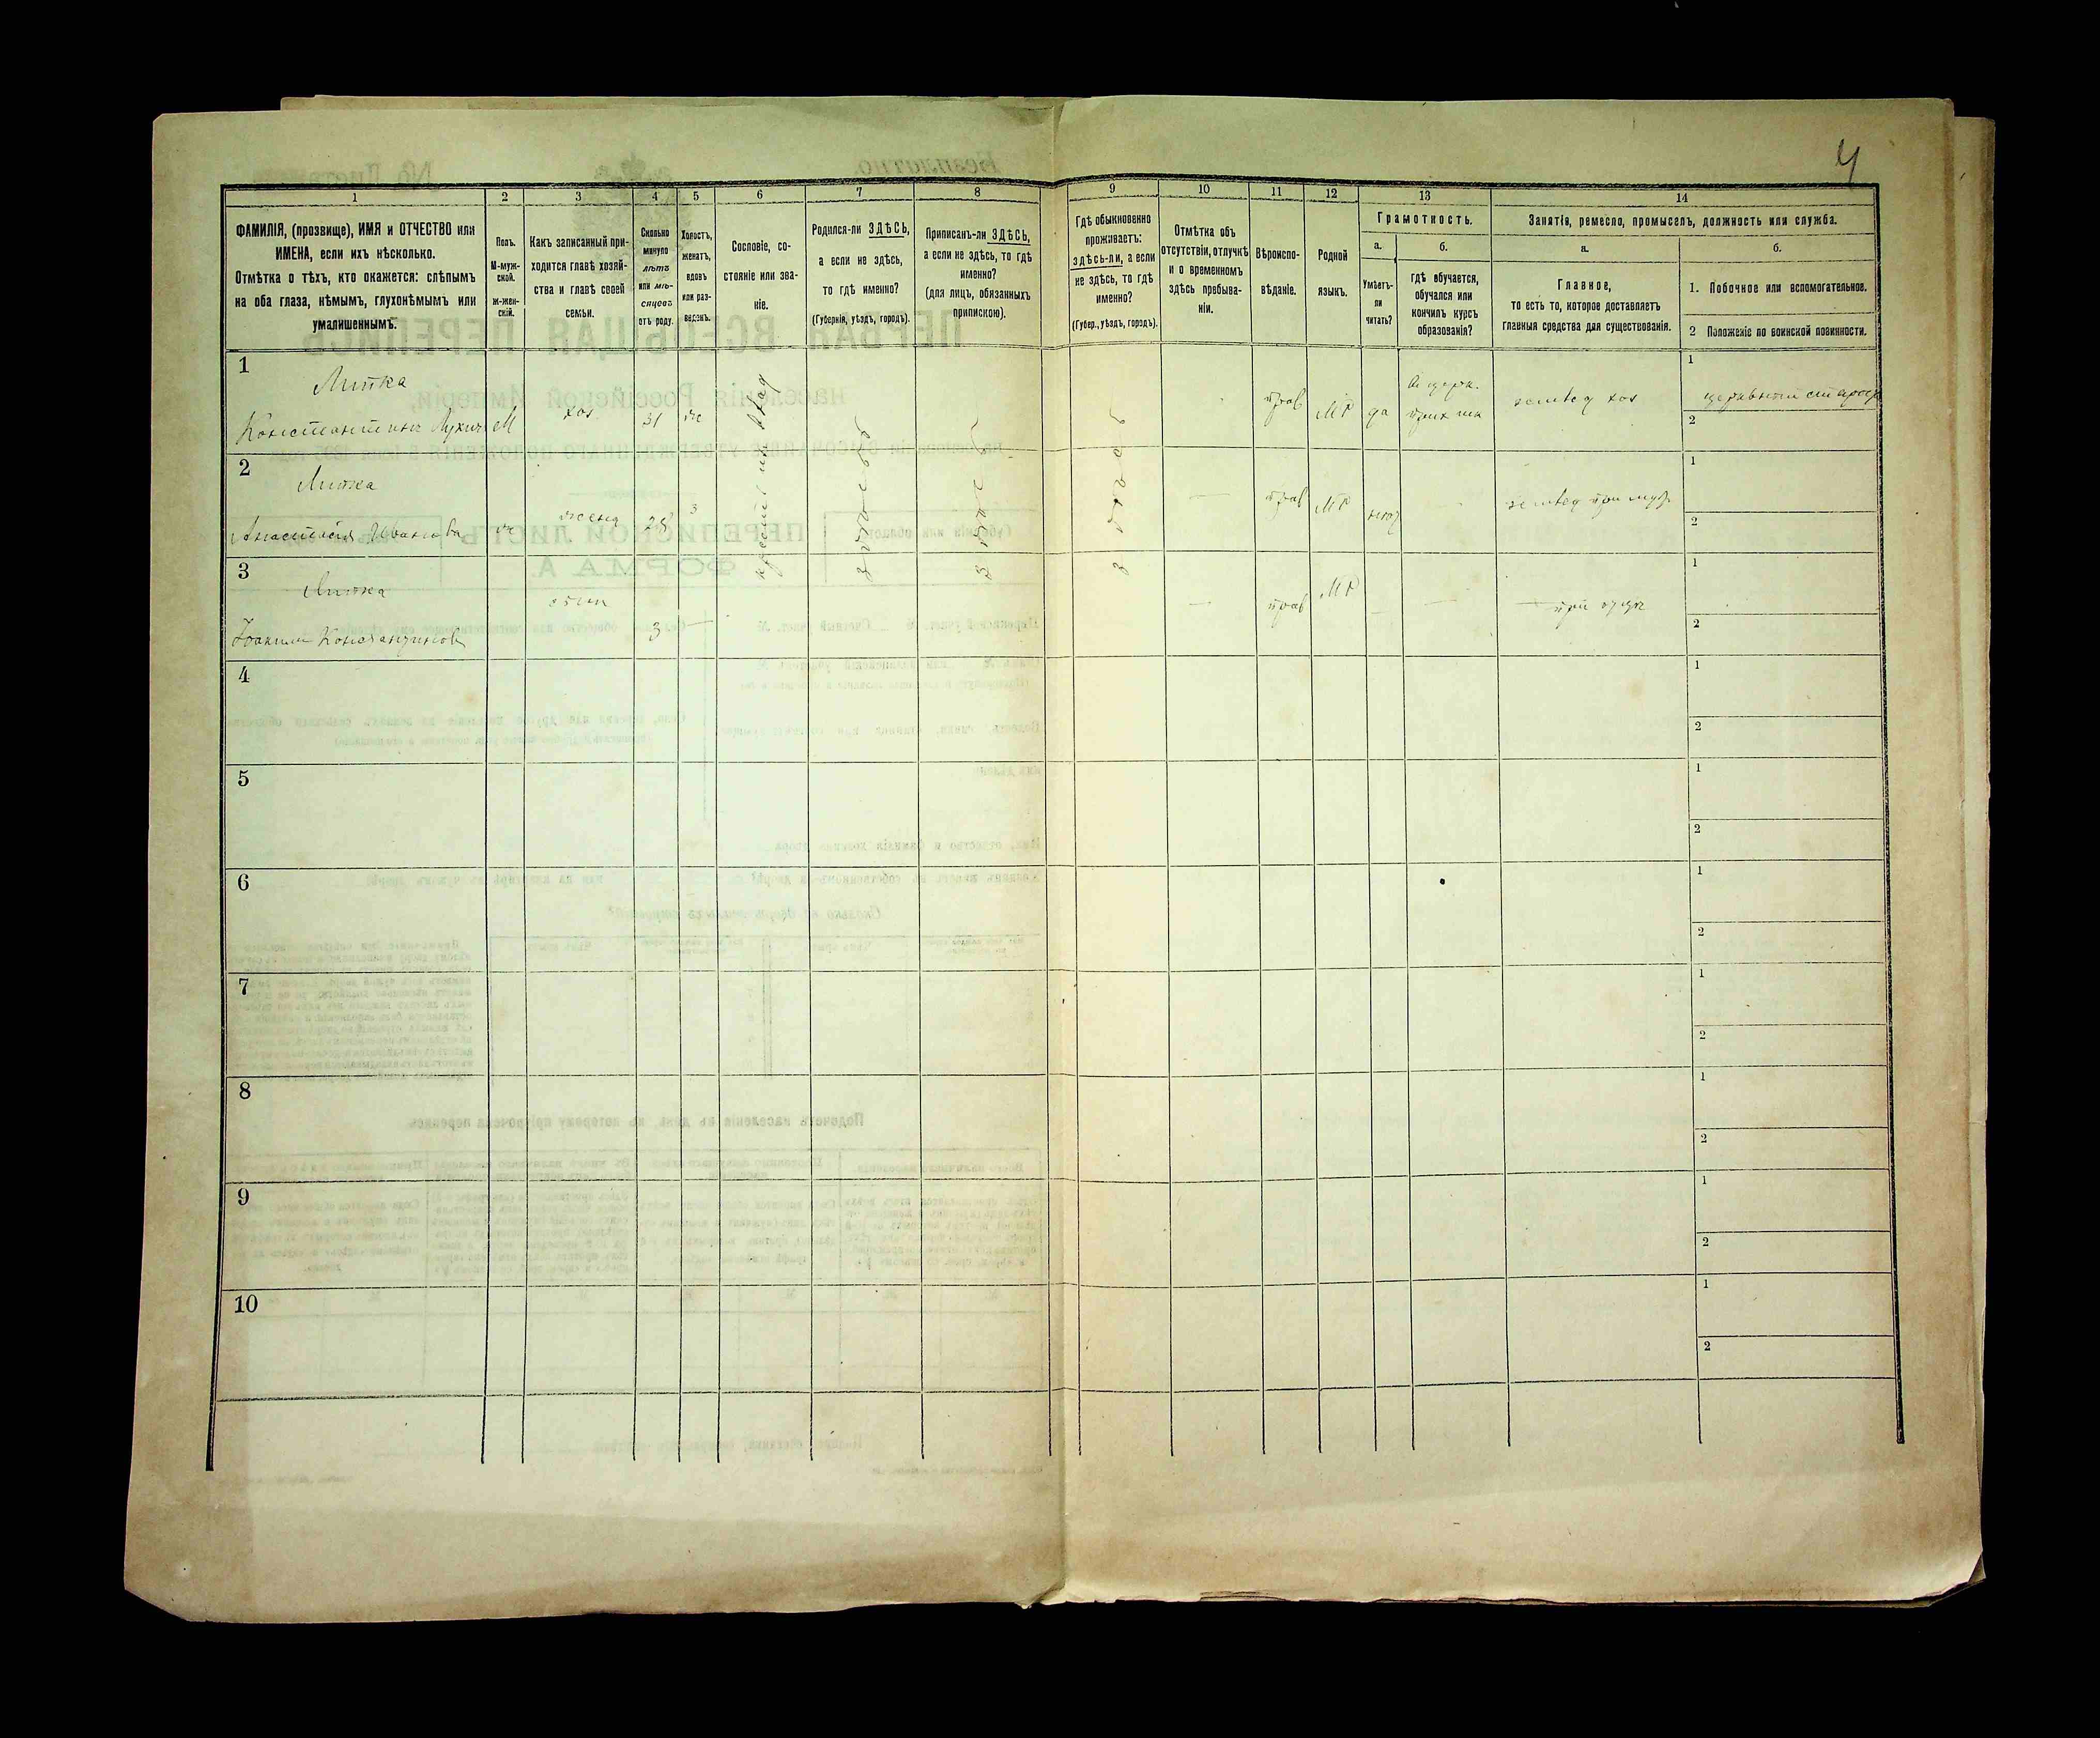 4
1 2 3 4 5 6 7 8 9 10 11 12 13 14
ФАМИЛІЯ, (прозвище), ИМЯ и ОТЧЕСТВО или
ИМЕНА, если ихъ нѣсколько.
Отмѣтка о тѣхъ, кто окажется: слѣпымъ
на оба глаза, нѣмымъ, глухонѣмымъ или
умалишеннымъ.
Полъ.
М-муж-
ской.
Ж-жен-
скій.
Какъ записанный при-
ходится главѣ хозяй-
ства и главѣ своей
семьи.
Сколько
минуло
лѣтъ
или мѣ-
сяцевъ
отъ роду.
Холостъ,
женатъ,
вдовъ
или раз-
веденъ.
Сословіе, со-
стояніе или зва-
ніе.
Родился-ли ЗДѢСЬ,
а если не здѣсь,
то гдѣ именно?
(Губернія, уѣздъ, городъ).
Приписанъ-ли ЗДѢСЬ,
а если не здѣсь, то гдѣ
именно?
(для лицъ, обязанныхъ
припискою).
Гдѣ обыкновенно
проживаетъ:
здѣсь-ли, а если
не здѣсь, то гдѣ
именно?
(Губер., уѣздъ, городъ).
Отмѣтка объ
отсутствіи, отлучкѣ
и о временномъ
здѣсь пребыва-
ніи.
Вѣроиспо-
вѣданіе.
Родной
языкъ.
Грамотность.
а.
Умѣетъ-
ли
читать?
б.
гдѣ обучается,
обучался или
кончилъ курсъ
образованія?
Занятія, ремесло, промыселъ, должность или служба.
а.
Главное,
то есть то, которое доставляетъ
главныя средства для существованія.
б.
1. Побочное или вспомогательное.
2 Положеніе по воинской повинности.
1
Липка
Константинъ М хоз. 31 ж
прав МР да
землед хоз
1
2
2
Липка
Анастасія Иванова ж жена 28 з
— прав МР
землед при муж
1
2
3
Липка
Іоакимъ Константиновъ сын 3 —
— прав МР — —
— при отцѣ
1
2
4
1
2
5
1
2
6
1
2
7
1
2
8
1
2
9
1
2
10
1
2